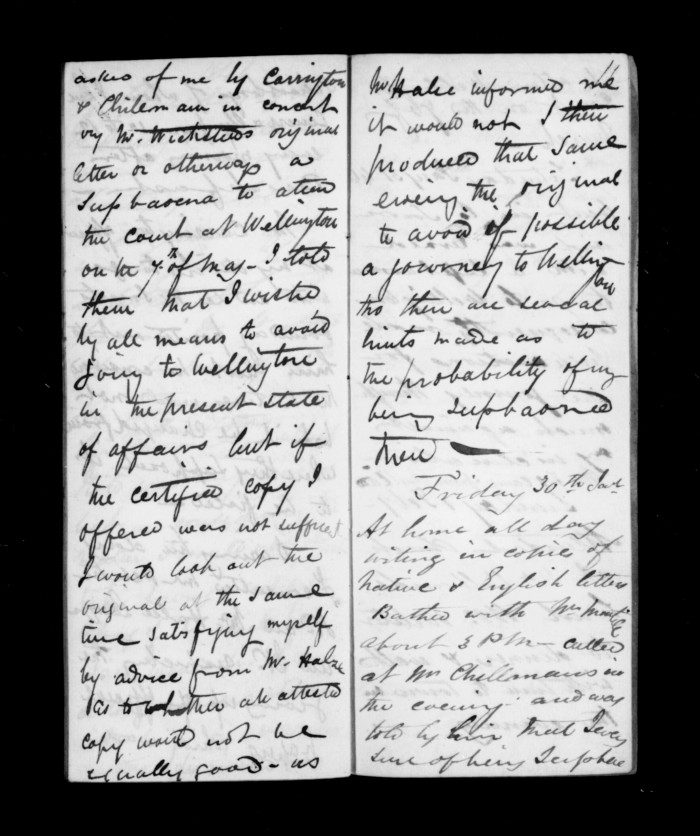 asked of me by Carrington
& Chilman in concert
by Mr. Wicksteeds original
letter or otherways a
Supbaoena to attend
the court at Wellington
on the 7th of May - I told
them that I wished
by all means to avoid
going to Wellington
in the present state
of affairs but if
the certified copy I
offered was not sufficient
I would look out the
original at the same
time satisfying myself
by advice from Mr. Halse
as to whether an attested
copy would not be
equally good - as
11
Mr Halse informed me
it would not I then
produced that same
evening the original
to avoid if possible
a journey to Wellington
tho there are several
hints made as to
the probability of my
being Supbaoned
there
Friday 30th
At home all day
writing in copies of
Native & English letters
Bathed with Mr
about 3 PM - called
at Mr Chillmans in
the evening - and was
told by him that I
sure of being Supbae